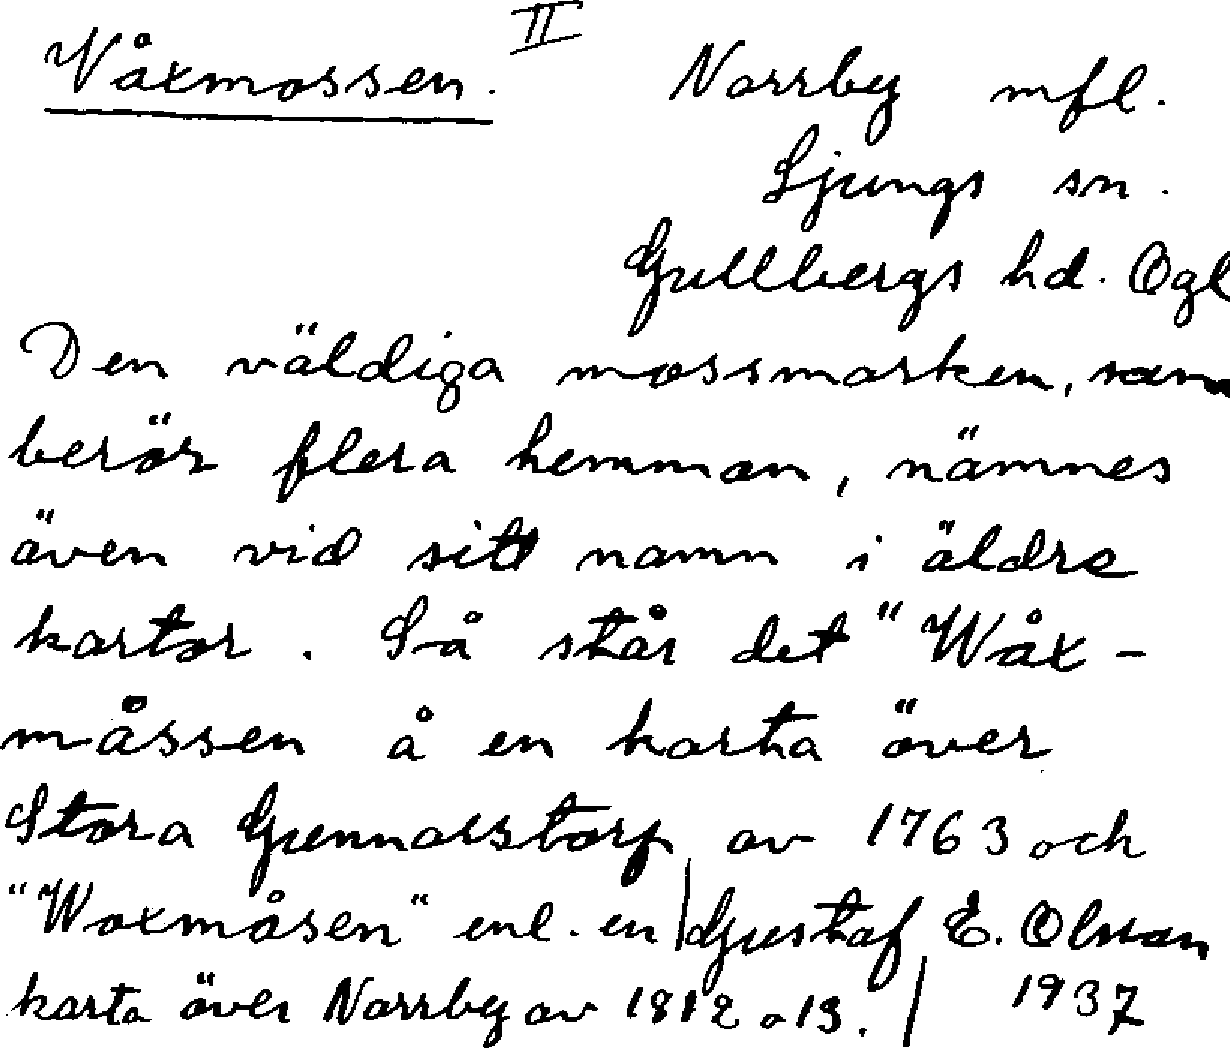 Våxmossen. II Norrby mfl.
Ljungs sn.
Gullbergs hd. Ögl
Den väldiga mossmarken, som
berör flera hemman, nämnes
även vid sitt namn i äldre
kartor. Så står det "Wåx-
måssen å en karta över
Stora Gunnorstorp av 1763 och
"Woxmåsen" enl. en | Gustaf E. Olsson
karta över Norrby av 1812 o 13. | 1937